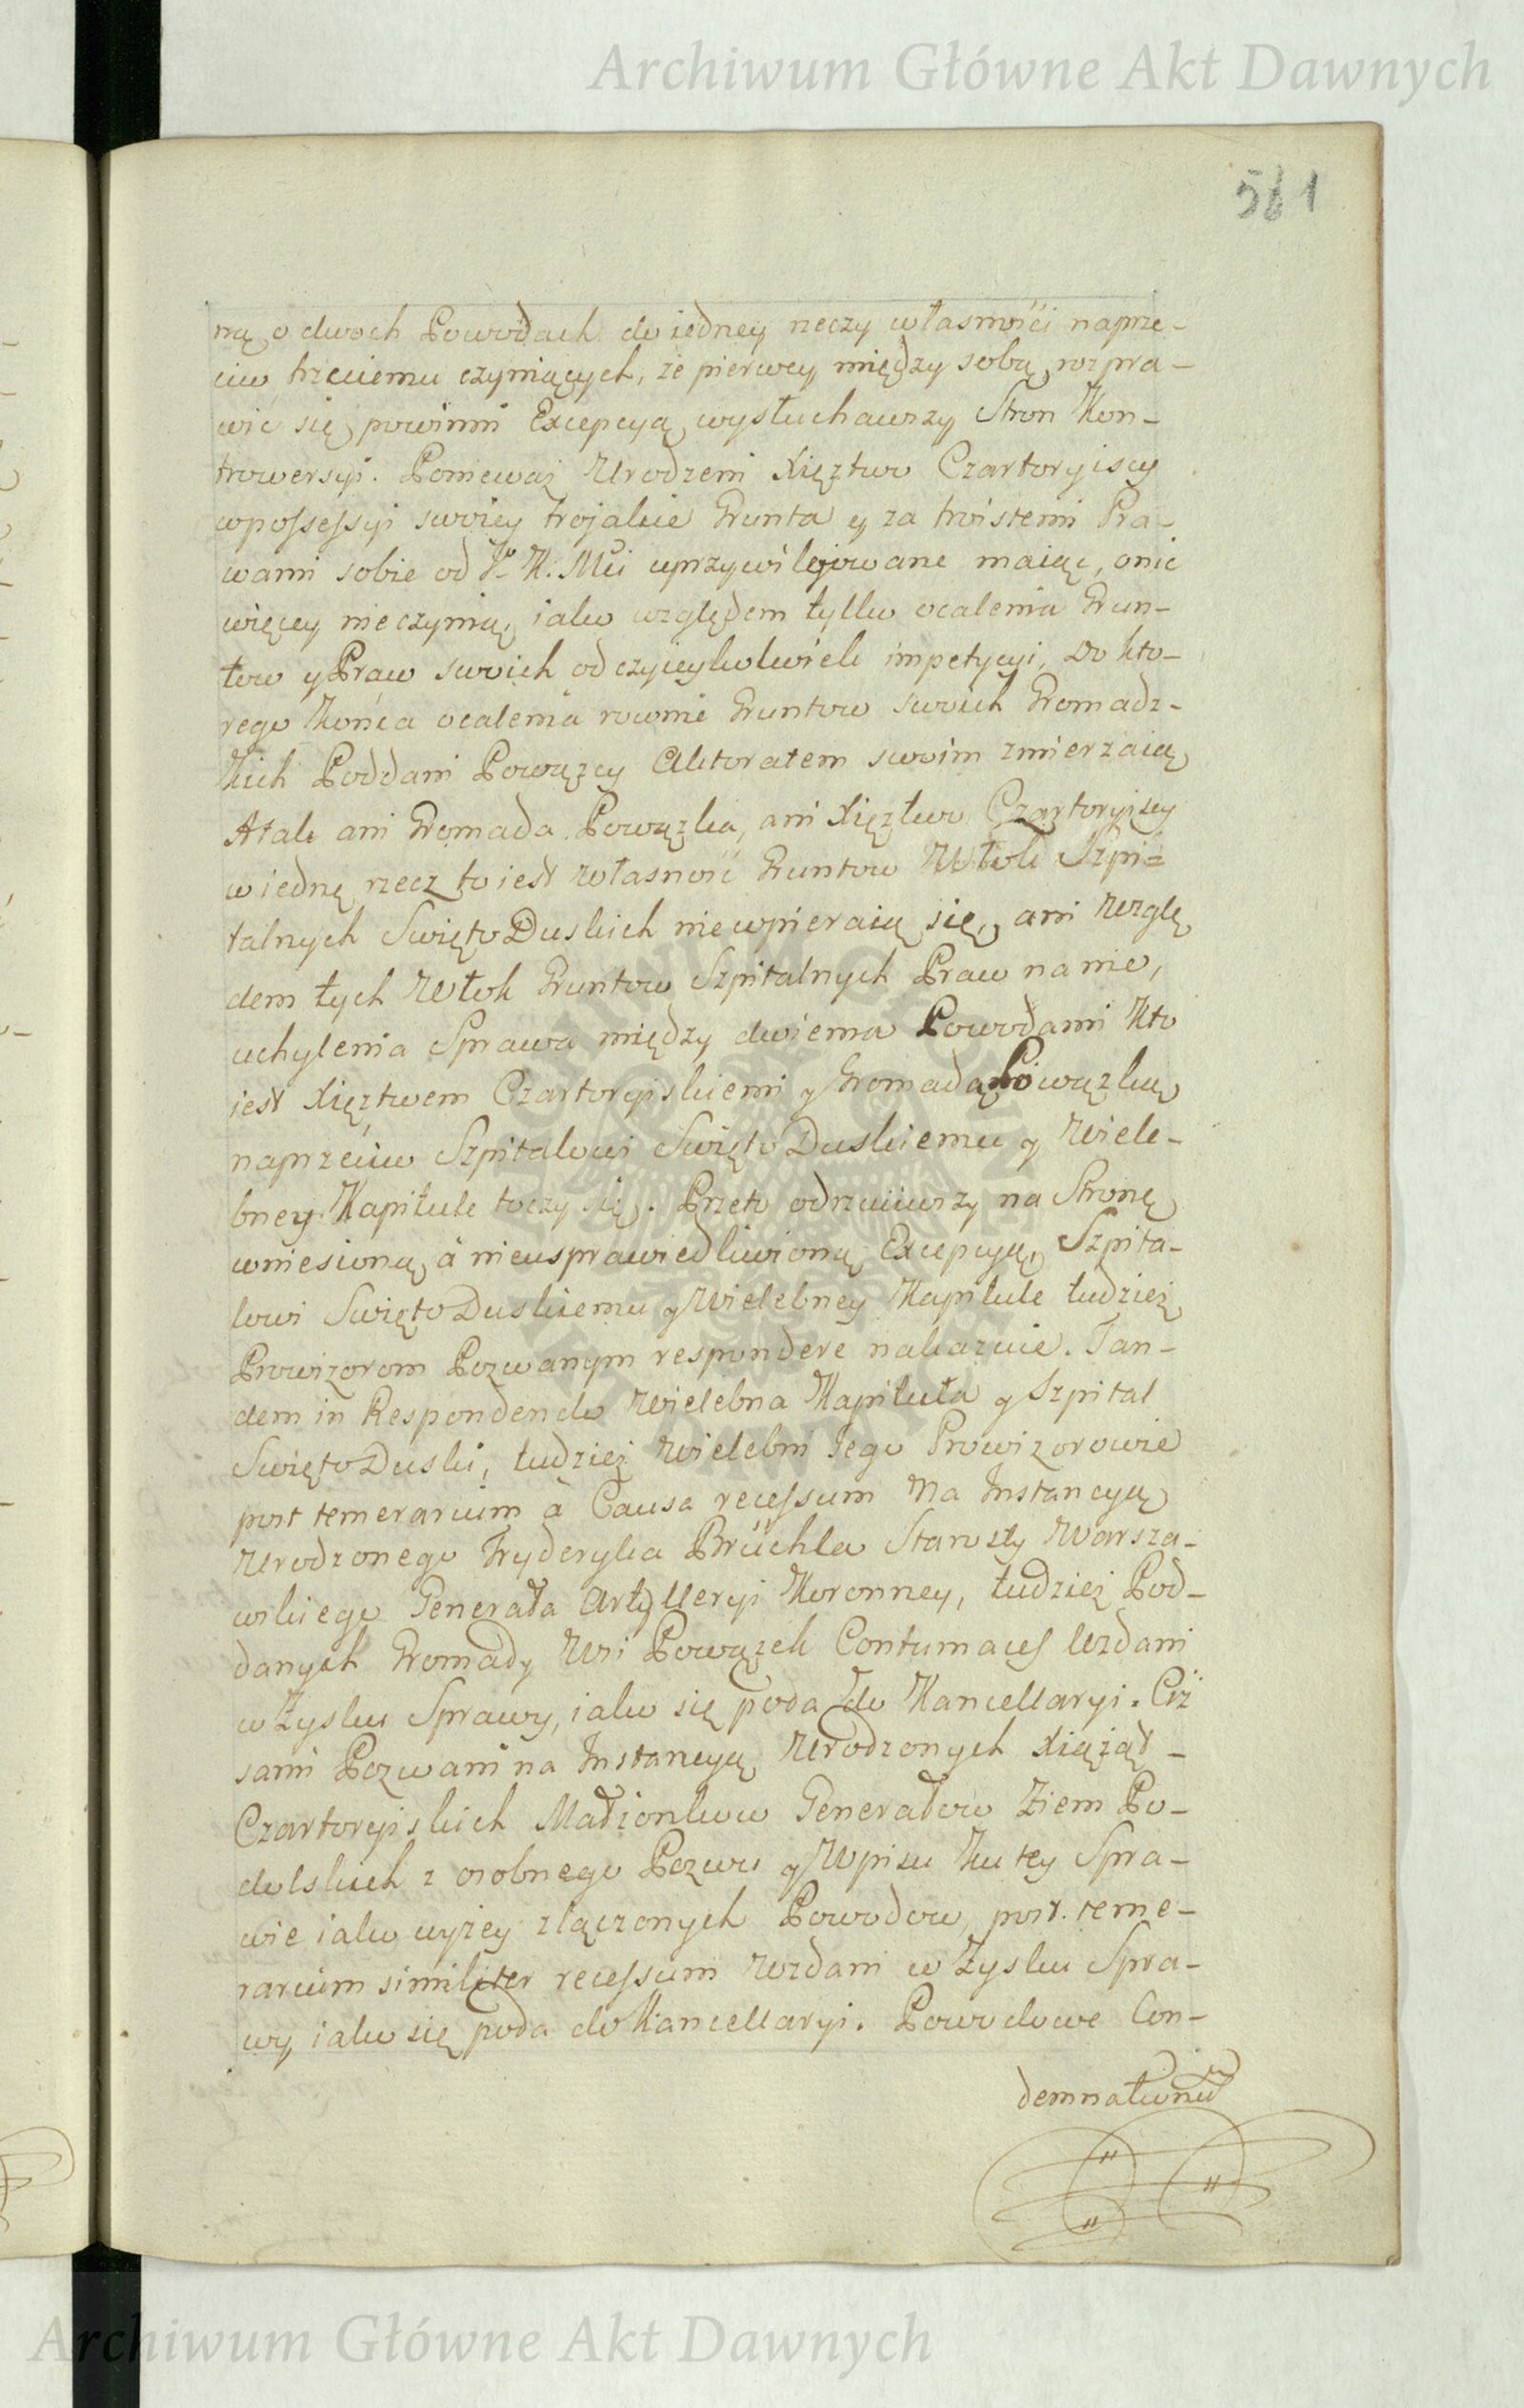 Archiwum Główne Akt Dawnych
581
ną o dwoch Powodach do iedney rzeczy własności naprze-
ciw trzeciemu czyniących, że pierwey między sobą rozpra-
wić się powinni Excepcyą wysłuchawszy Stron Kon-
trowersyi. Ponieważ Urodzeni Xięztwo Czartoryiscy
w possessyi swoiey trojakie Grunta y za troistemi Pra-
wami sobie od J. K. Mci uprzywilejowane maiąc, o nic
więcey nie czynią, iako względem tylko ocalenia Grun-
tow y Praw swoich od czyieykolwiek impetycyi, Do kto-
rego Końca ocalenia rownie Gruntow swoich Gromadz-
kich Poddani Powązcy Aktoratem swoim zmierzaią
A tak ani Gromada Powązka, ani Xięztwo Czartoryiscy
w iednę rzecz to iest Własność Gruntow Włok Szpi-
talnych Swięto Duskich nie wpieraią się, ani Wzglę
dem tych Włok Gruntow Szpitalnych Praw na nie,
uchylenia Sprawa między dwiema Powodami Kto
iest Xięztwem Czartoryiskiemi y Gromadą Powązką
naprzeciw Szpitalowi Swięto Duskiemu y Wiele-
bney Kapitule toczy się. Przeto odrzuciwszy na Stronę
wniesioną á nieusprawiedliwioną Excepcyą, Szpita-
lowi Swięto Duskiemu y Wielebney Kapitule tudzież
Prowizorom Pozwanym respondere nakazuie. Tan-
dem in Respondendo Wielebna Kapituła y Szpital
Swięto Duski, tudzież Wielebni Jego Prowizorowie
post temerarium à Causa recessum Na Instancyą
Urodzonego Fryderyka Brüchla Starosty Warsza-
wskiego Generała Artylleryi Koronney, tudzież Pod-
danych Gromady Wsi Powązek Contumaces Wzdani
w Zysku Sprawy, iako się poda do Kancellaryi. Ciż
sami Pozwani na Instancyą Urodzonych Xiążąt -
Czartoryiskich Małżonkow Generałow Ziem Po-
dolskich z osobnego Pozwu y Wpisu Ku tey Spra-
wie iako wyżey złączonych Powodow, post teme-
rarium similiter recessum Wzdani w Zysku Spra-
wy, iako się poda do Kancellaryi. Powodowe Con-
demnatwne
Archiwum Główne Akt Dawnych